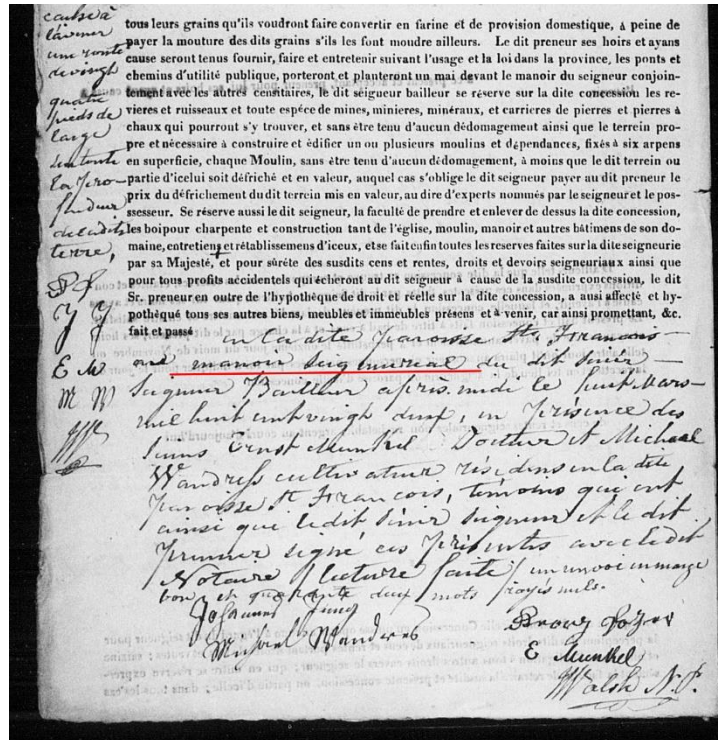 cause à
l'avenir
une route
de vingt
quatre
pieds de
large
dans toute
la pro-
fondeur
de la dite
terre,
J J
E M
M W
tous leurs grains qu'ils voudront faire convertir en farine et de provision domestique, à peine de
payer la mouture des dits grains s'ils les font moudre ailleurs. Le dit preneur ses hoirs et ayans
cause seront tenus fournir, faire et entretenir suivant l'usage et la loi dans la province, les ponts et
chemins d'utilité publique, porteront et planteront un mai devant le manoir du seigneur conjoin-
tement avec les autres censitaires, le dit seigneur bailleur se réserve sur la dite concession les re-
vieres et ruisseaux et toute espéce de mines, minieres, minéraux, et carrieres de pierres et pierres à
chaux qui pourront s'y trouver, et sans être tenu d'aucun dédomagement ainsi que le terrein pro-
pre et nécessaire à construire et édifier un ou plusieurs moulins et dépendances, fixés à six arpens
en superficie, chaque Moulin, sans être tenu d'aucun dédomagement, à moins que le dit terrein ou
partie d'icelui soit défriché et en valeur, auquel cas s'oblige le dit seigneur payer au dit preneur le
prix du défrichement du dit terrein mis en valeur, au dire d'experts nommés par le seigneur et le pos-
ssesseur. Se réserve aussi le dit seigneur, la faculté de prendre et enlever de dessus la dite concession,
les bois pour charpente et construction tant de l'église, moulin, manoir et autres bâtimens de son do-
maine, entretiens et rétablissemens d'iceux, et se fait enfin toutes les reserves faites sur la dite seigneurie
par sa Majesté, et pour sûreté des susdits cens et rentes, droits et devoirs seigneuriaux ainsi que
pour tous profits accidentels qui écheront au dit seigneur à cause de la susdite concession, le dit
Sr. preneur en outre de l'hypothêque de droit et réelle sur la dite concession, a ausi affecté et hy-
pothéqué tous ses autres biens, meubles et immeubles présens et à venir, car ainsi promettant, &c.
fait et passé en la dite paroisse St. François
au manoir seigneurial du dit sieur
Seigneur Bailleur après midi le huit Mars
mil huit cent vingt deux, en présence des
sieurs Ernst Munkel Docteur et Michael
Wandress cultivateur résidens en la dite
paroisse St. François, temoins qui ont
ainsi que le dit sieur seigneur et le dit
preneur signé ces présentes avec le dit
Notaire lecture faite / un renvoi en marge
bon, et quarante deux mots rayés nuls.
Johannes Jung
Michael Wandres
E Munkel
Walsh N.P.